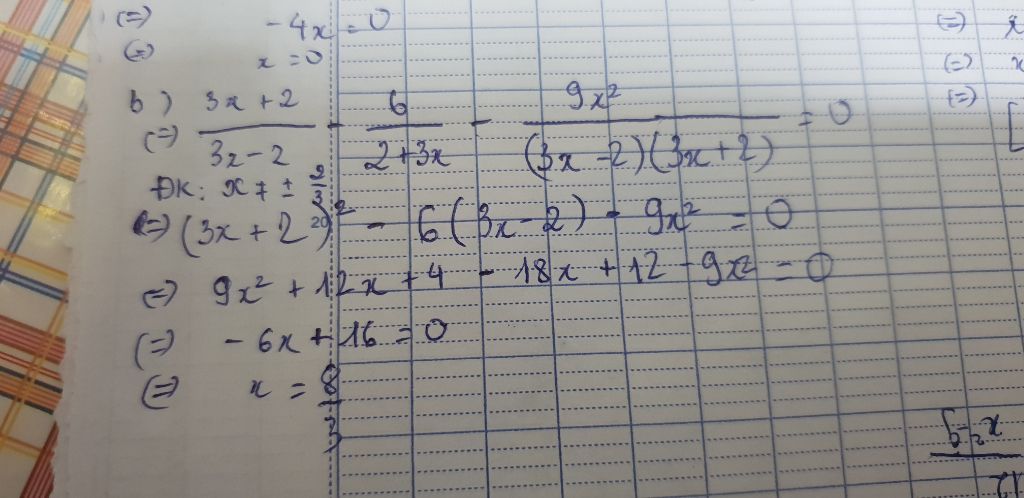 (=) -4x = 0
(=) x = 0
b) (=) \frac{3x+2}{3x-2} - \frac{6}{2+3x} - \frac{9x^2}{(3x-2)(3x+2)} = 0
ĐK: x ≠ ± \frac{2}{3}
(=) (3x+2)^2 - 6(3x-2) - 9x^2 = 0
(=) 9x^2 + 12x + 4 - 18x + 12 - 9x^2 = 0
(=) -6x + 16 = 0
(=) x = \frac{8}{3}
(=) x
(=) x
(=) [